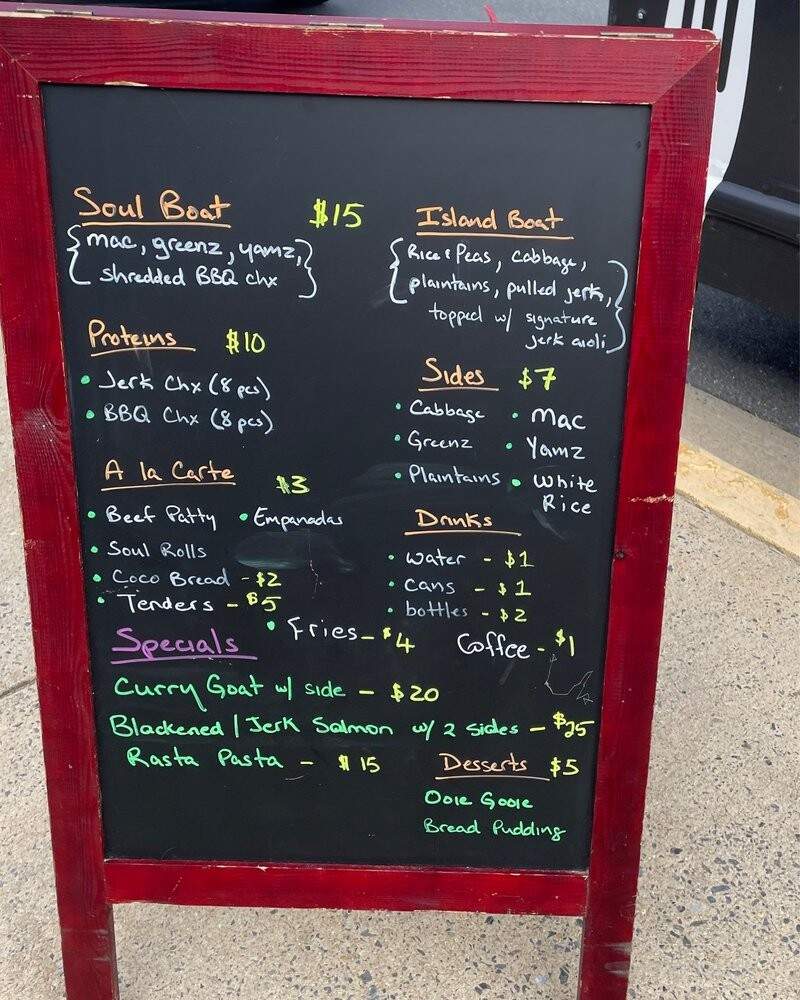 Soul Boat $15
{mac, greenz, yamz,
shredded BBQ chx}
Island Boat
{Rice & Peas, cabbage,
plaintains, pulled jerk,
topped w/ signature
jerk aioli}
Proteins $10
• Jerk Chx (8 pcs)
• BBQ Chx (8 pcs)
Sides $7
• Cabbage • Mac
• Greenz • Yamz
• Plaintains • White
Rice
A la Carte $3
• Beef Patty • Empanadas
• Soul Rolls
• Coco Bread - $2
• Tenders - $5
• Fries - $4
Drinks
• water - $1
• cans - $1
• bottles - $2
Coffee - $1
Specials
Curry Goat w/ side - $20
Blackened / Jerk Salmon w/ 2 sides - $25
Rasta Pasta - $15
Desserts $5
Ooie Gooie
Bread Pudding